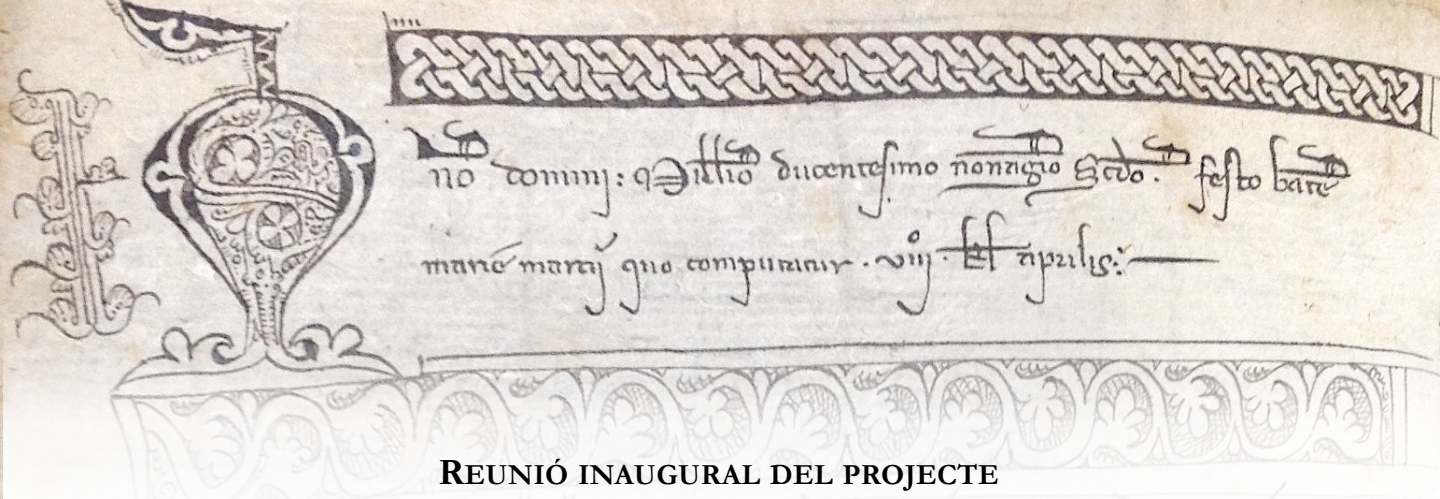 no domini: Millio ducentesimo nonagio Scdo. festo bate
marie marcij quo computatur .viiij. kl aprilis:
REUNIÓ INAUGURAL DEL PROJECTE